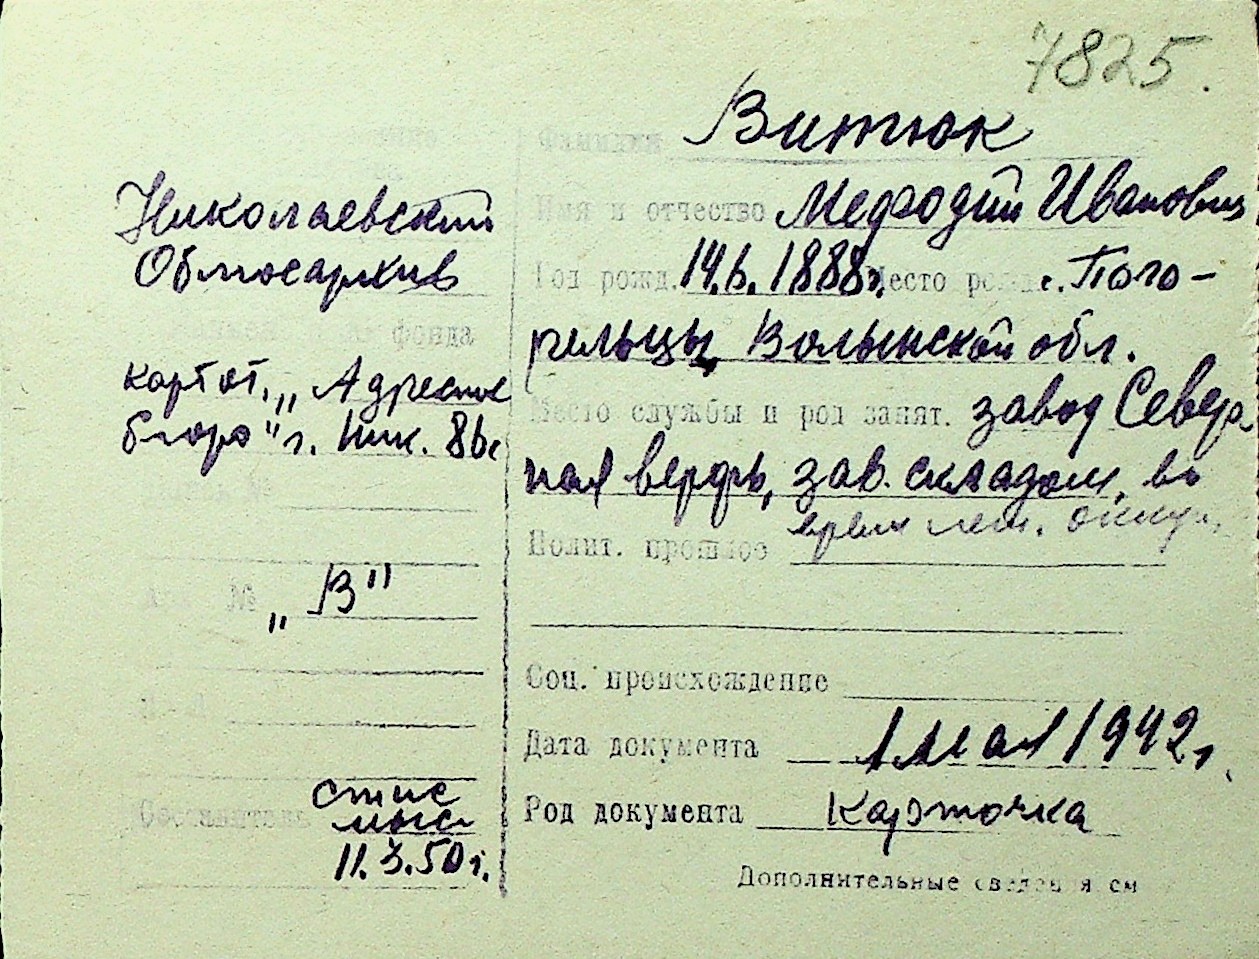 7825.
Николаевский
Облгосархив
фонда
картот. „Адресное
бюро" г. Ник.
№
№ „В"
Составитель
11.3.50 г.
Фамилия Витюк
Имя и отчество Мефодий Иванович
Год рожд. 14.6.1888 г. Место рожд. с. Пого-
рельцы, Волынской обл.
Место службы и род занят. завод Север
ная верфь, зав. складом, во
время нем. оккуп.
Полит. прошлое
Соц. происхождение
Дата документа 1 мая 1942 г.
Род документа Карточка
Дополнительные сведения см